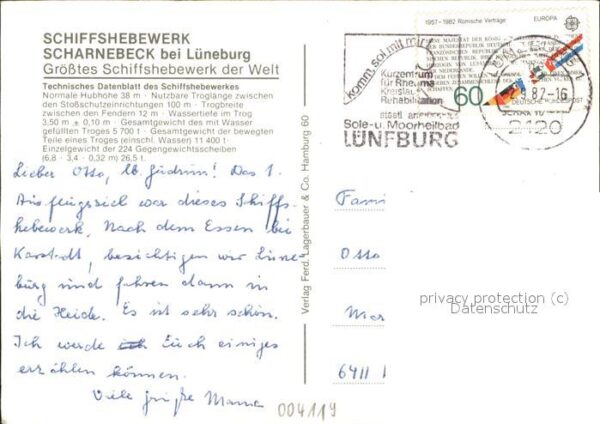 SCHIFFSHEBEWERK
SCHARNEBECK bei Lüneburg
Größtes Schiffshebewerk der Welt
Technisches Datenblatt des Schiffshebewerkes
Normale Hubhöhe 38 m · Nutzbare Troglänge zwischen
den Stoßschutzeinrichtungen 100 m · Trogbreite
zwischen den Fendern 12 m · Wassertiefe im Trog
3,50 m ± 0,10 m · Gesamtgewicht des mit Wasser
gefüllten Troges 5 700 t · Gesamtgewicht der bewegten
Teile eines Troges (einschl. Wasser) 11 800 t
Einzelgewicht der 224 Gegengewichtsscheiben
(6,8 · 3,4 · 0,32 m) 26,5 t.
Lieber Otto, lb. Gudrun! Das 1.
Ausflugsziel war dieses Schiffs
hebewerk. Nach dem Essen bei
Karstadt, besichtigen wir Lüne
burg und fahren dann in
die Heide. Es ist sehr schön.
Ich werde Euch einiges
erzählen können.
Viele Grüße Mama
004119
Verlag Ferd. Lagerbauer & Co. Hamburg 60
komm sol mit mir
Kurzentrum
für Rheuma
Kreislauf
Rehabilitation
staatl. anerk.
Sole- u. Moorheilbad
LÜNEBURG
1957-1982 Römische Verträge
EUROPA
60
DEUTSCHE BUNDESPOST
82-16
2120
Fami
Otto
6411
privacy protection (c)
Datenschutz